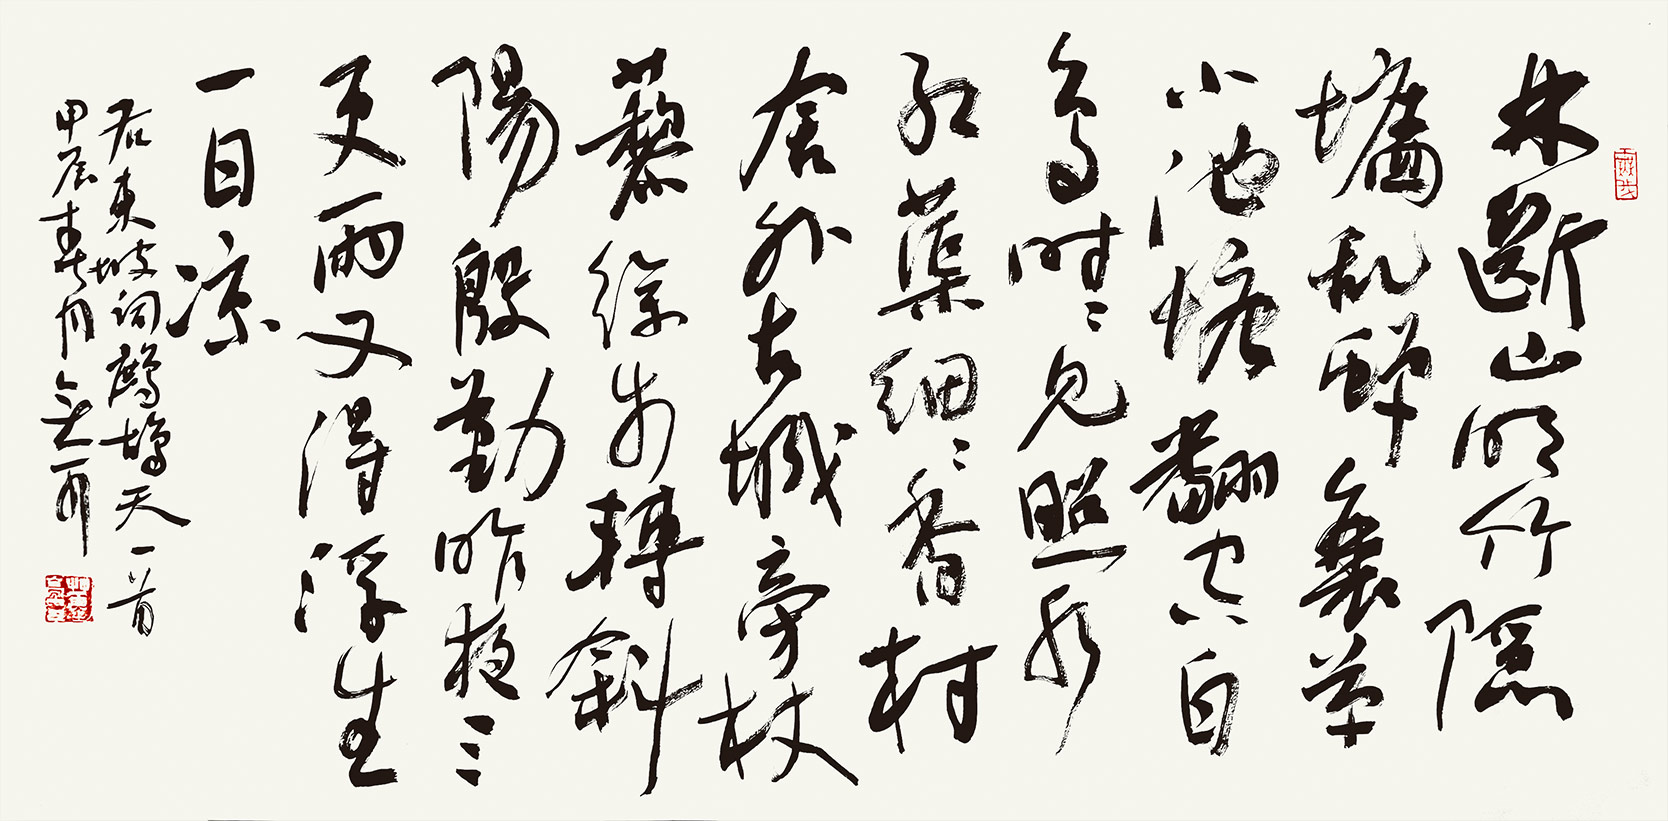 林斷山明竹隱
墻乱蟬衰草
小池塘翻空白
鳥時〻見照水
紅蕖細〻香村
舍外古城旁杖
藜徐步轉斜
陽殷勤昨夜三
更雨又得浮生
一日凉
右東坡词鷓鴣天一首
甲辰春月